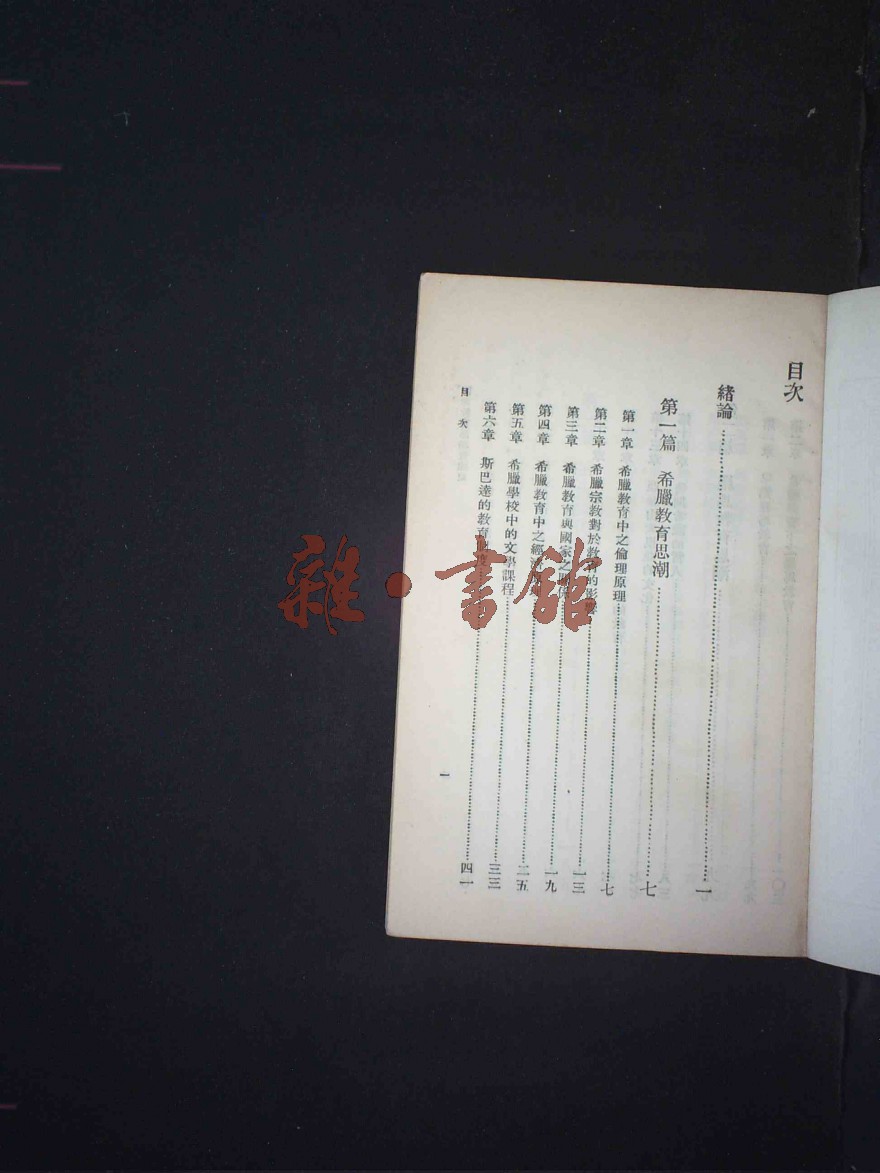 目次
緒論……一
第一篇 希臘教育思潮……七
第一章 希臘教育中之倫理原理……七
第二章 希臘宗教對於教育的影響……一三
第三章 希臘教育與國家之關係……一九
第四章 希臘教育中之經濟原理……二五
第五章 希臘學校中的文學課程……三三
第六章 斯巴達的教育制度……四一
目次
一
雜·書館